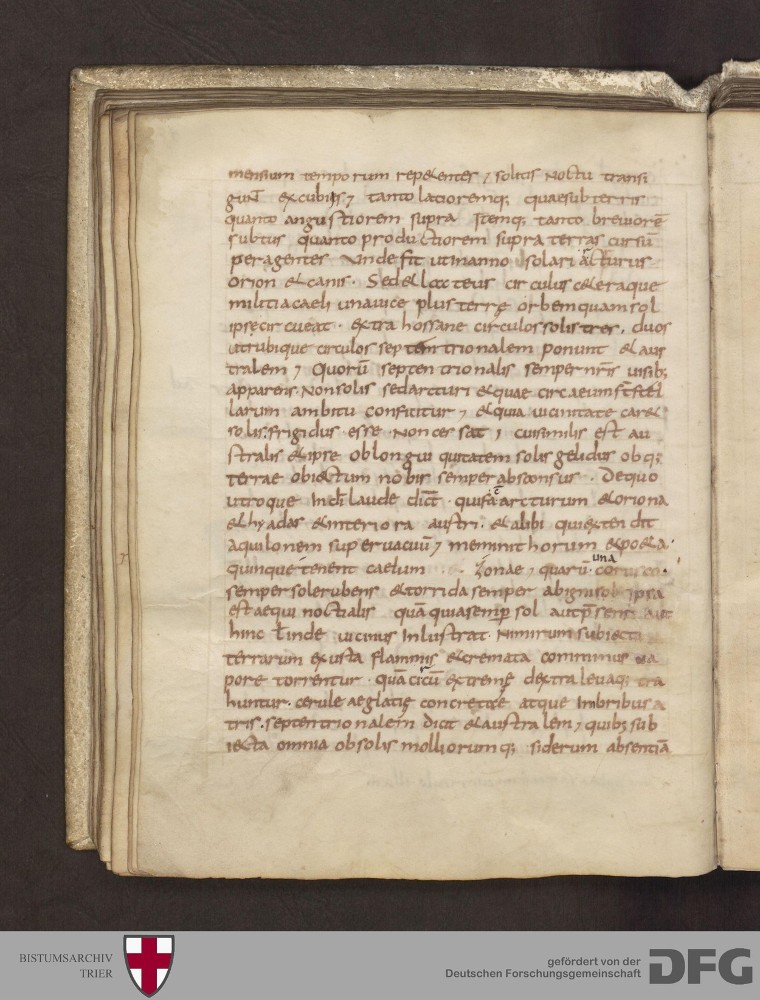 mensium temporum repetentes ⁊ solitis noctu transi
gunt excubiis ⁊ tanto latioremq; quae sub terris
quanto angustiorem supra Itemq; tanto breuiorē
subtus quanto productiorem supra terras cursū
peragentes Unde fit ut in anno solari arcturus
orion et canis. Sed et lacteus circulus ceteraque
militia caeli una uice plus terrę orbem quam sol
ipse circueat. extra hos sane circulos solis tres, duos
utrubique circulos septemtrionalem ponunt et aus
tralem ⁊ Quorū septentrionalis semper nr̄is uisib;
apparens Non solis sed arcturi et quae circa eum st̄ stel
larum ambitu conficitur ⁊ et quia uicinitate caret
solis. frigidus esse Non cessat ⁊ cui similis est au
stralis et ipse oblonguiquitatem solis gelidus obq;
terrae obiectum nobis semper absconsus. De quo
utroque In dī laude dict̄. qui facͭ arcturum et oriona
et hyadas et interiora austri. et alibi qui extendit
aquilonem super uacuū ⁊ meminit horum et poeta.
quinque tenent caelum zonae ⁊ quarū una corusco.
semper sole rubens et torrida semper ab igni sol ipsa
est aequinoctialis quā quia semp̄ sol aut p̄sens aut
hinc t̄ inde uicinus Inlustrat. Nimirum subiecta
terrarum exusta flammis et cremata comminus ua
pore torrentur. quā circū extremę dextra leuaq; tra
huntur. cerule ae glatię concretę atque Imbribus a
tris. septentrionalem dicit et australem ⁊ quib; sub
iecta omnia ob solis molliorumq; siderum absentiā
BISTUMSARCHIV
TRIER
gefördert von der
Deutschen Forschungsgemeinschaft
DFG